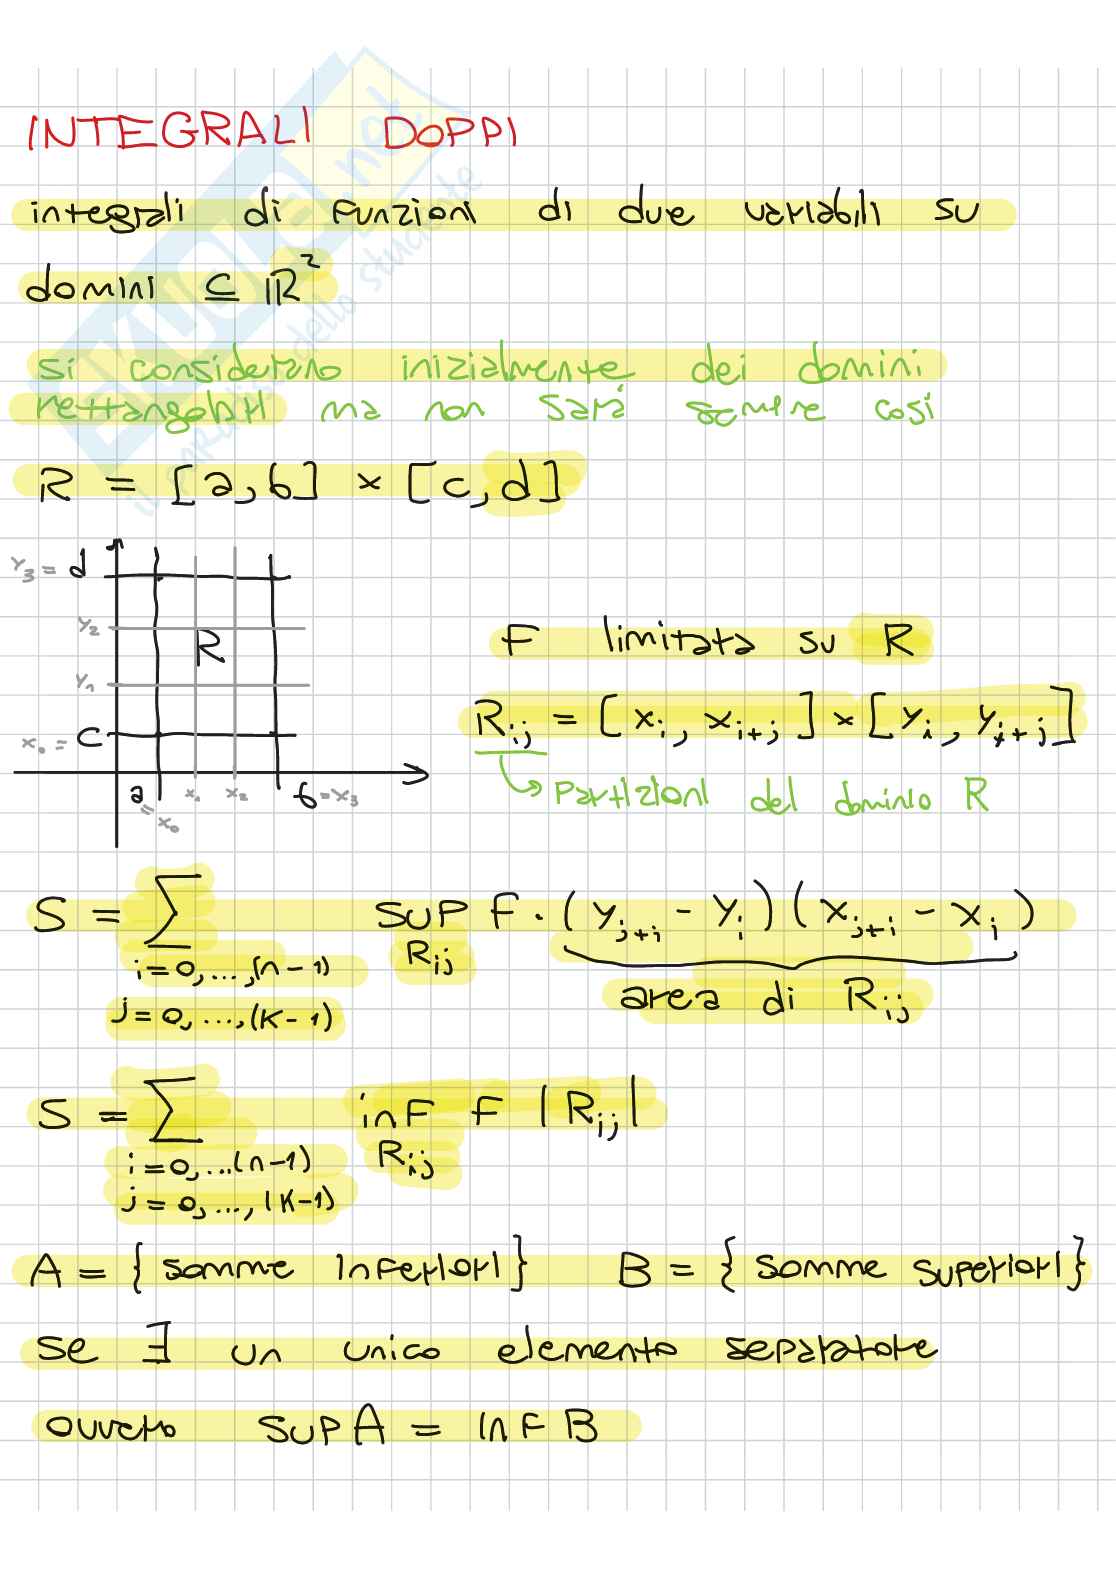 INTEGRALI DOPPI
integrali di funzioni di due variabili su
domini ⊆ ℝ²
si considerano inizialmente dei domini
rettangolari ma non sarà sempre così
R = [a,b] × [c,d]
y₃ = d
y₂
R
y₁
x₀ = c
a = x₀ x₁ x₂ b = x₃
F limitata su R
R_ij = [x_i, x_{i+j}] × [y_i, y_{i+j}]
Partizioni del dominio R
S = ∑ sup F · (y_{j+i} - y_i)(x_{j+i} - x_i)
i = 0,...,(n-1) R_ij
area di R_ij
j = 0,...,(K-1)
S = ∑ inf F |R_ij|
i = 0,...(n-1) R_ij
j = 0,...,(K-1)
A = {somme inferiori} B = {somme superiori}
se ∃ un unico elemento separatore
ovvero sup A = inf B
SKUOLA.net
il paradiso dello studente